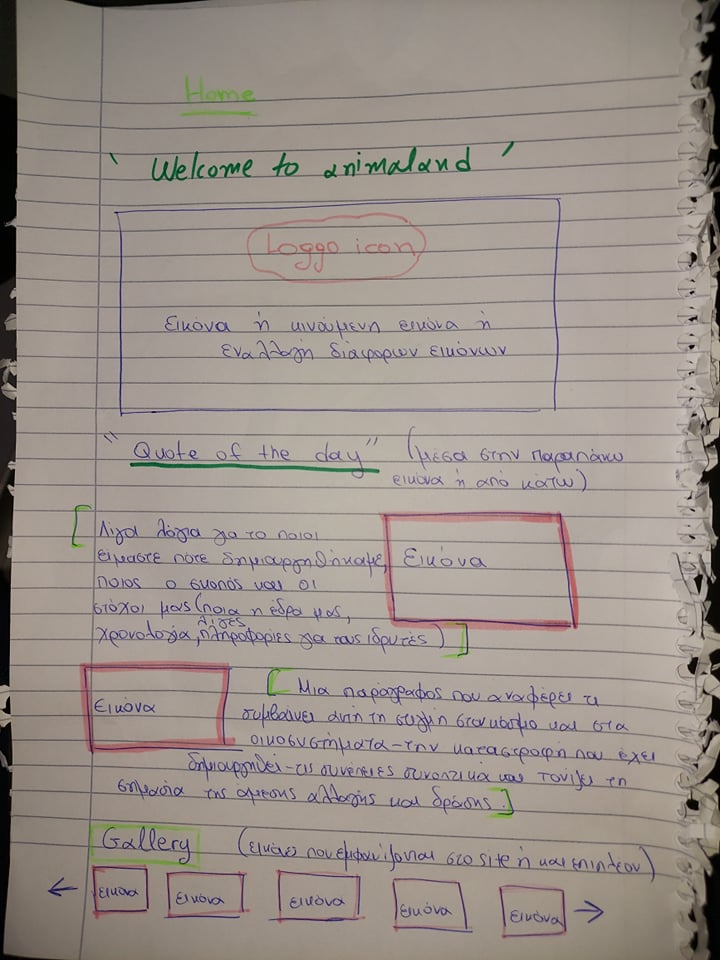 Home
' Welcome to animaland '
Loggo icon
Εικόνα ή κινούμενη εικόνα ή
εναλλαγή διάφορων εικόνων
" Quote of the day" (μέσα στην παραπάνω
εικόνα ή από κάτω)
[ Λίγα λόγια για το ποιοι
είμαστε πότε δημιουργηθήκαμε,
ποιος ο σκοπός και οι
στόχοι μας (ποια η έδρα μας,
χρονολογία, λίγες πληροφορίες για τους ιδρυτές) ]
Εικόνα
Εικόνα
[ Μια παράγραφος που αναφέρει τι
συμβαίνει αυτή τη στιγμή στον κόσμο και στα
οικοσυστήματα - την καταστροφή που έχει
δημιουργηθεί - τις συνέπειες συνοπτικά και τονίζει τη
σημασία της άμεσης αλλαγής και δράσης. ]
Gallery (εικόνες που εμφανίζονται στο site ή και επιπλέον)
← εικόνα εικόνα εικόνα εικόνα εικόνα →